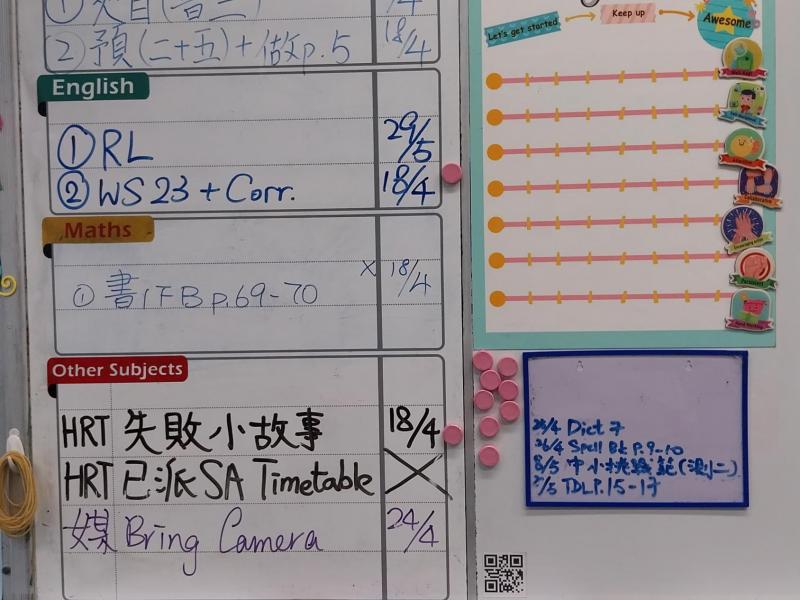 2 預(二十五)+做p.5 18/4
English
① RL 29/5
② WS 23 + Corr. 18/4
Maths
① 書1FB p.69-70 × 18/4
Other Subjects
HRT 失敗小故事 18/4
HRT 已派SA Timetable
媒 Bring Camera 24/4
Let's get started
Keep up
Awesome
Collaborative
Persistent
Dict 7
26/4 Spell Bk P.9-10
8/5 中小挑戰 (測二)
TDL P.15-17